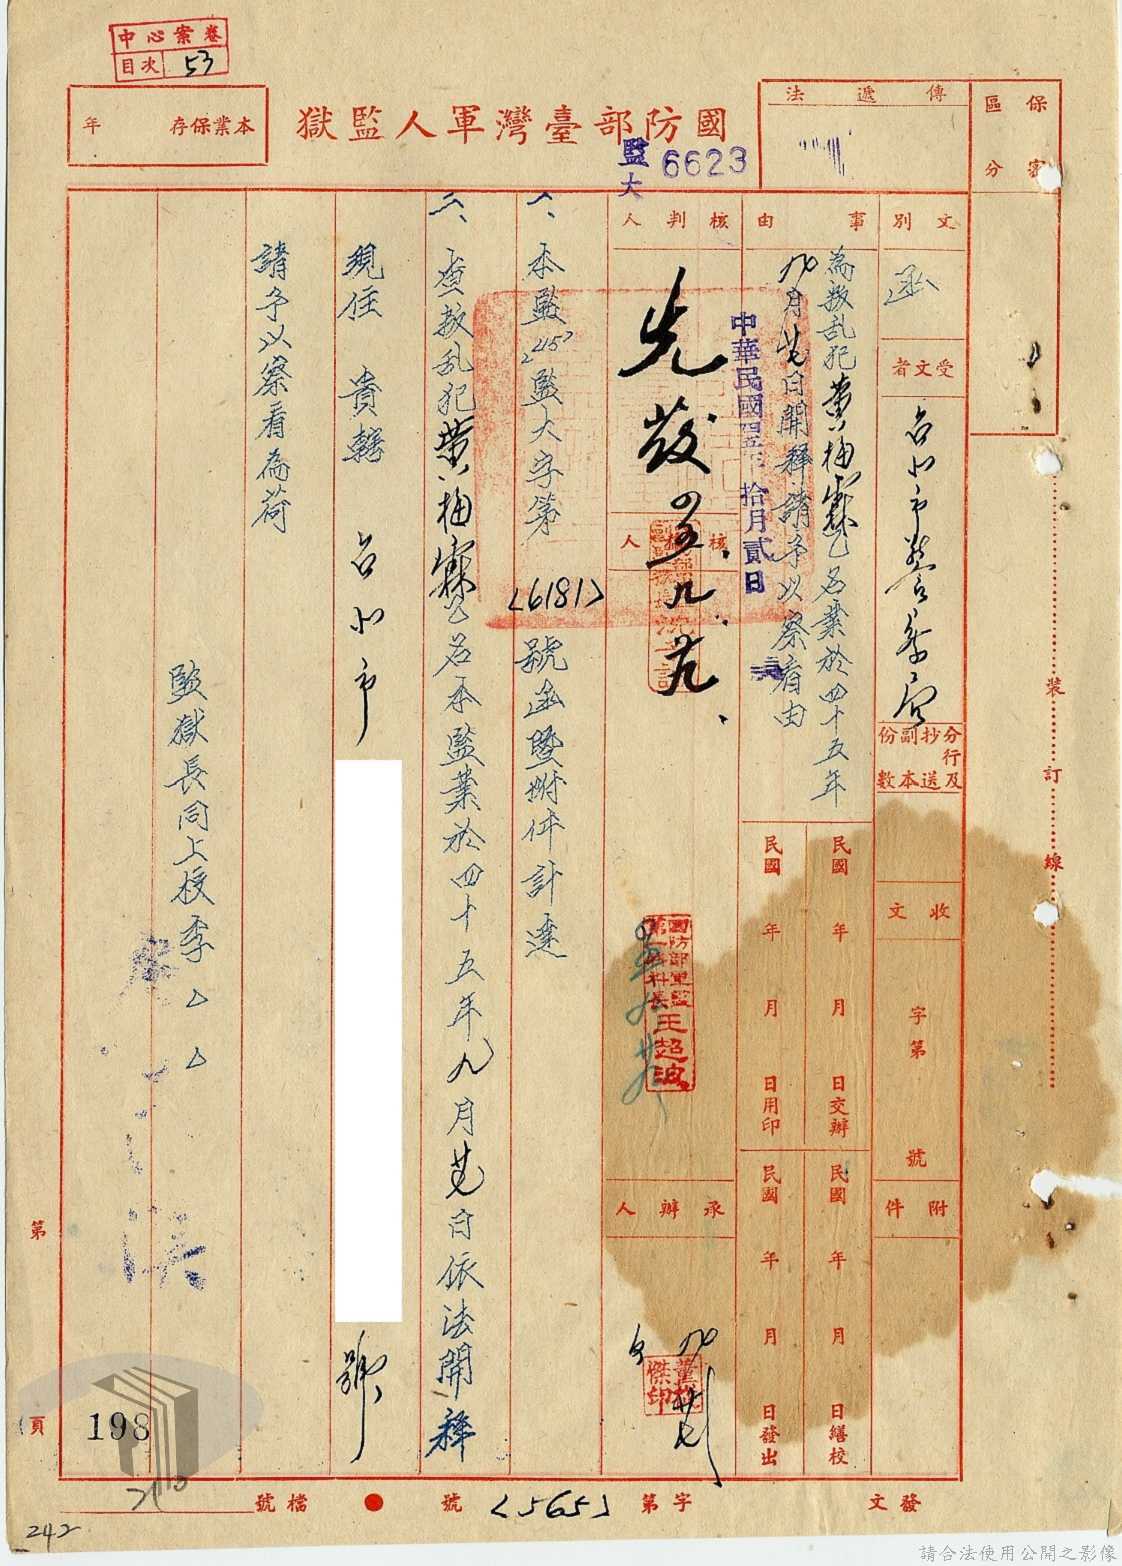 中心案卷
目次 53
保密
區分
傳遞法
國防部臺灣軍人監獄
監大 6623
本案保存 年
文別
函
受文者
台北市警察局
分行及
抄送
副本
份數
收文
字第 號
附件
事由
為叛乱犯黃梅霖乙名業於四十五年
九月 日開釋請予以察看由
中華民國四五年拾月貳日
民國 年 月 日交辦
民國 年 月 日繕校
民國 年 月 日用印
民國 年 月 日發出
核判人
先發
核稿人
國防部軍監第一科科長王超波
承辦人
一、本監(45)監大字第(6181)號函暨附件計達
二、查叛乱犯黃梅霖乙名本監業於四十五年九月 日依法開釋
現住 貴轄 台北市 號
請予以察看為荷
監獄長同上校李
裝 訂 線
發文 字第 (565) 號
檔號
第 頁
198
242
請合法使用公開之影像